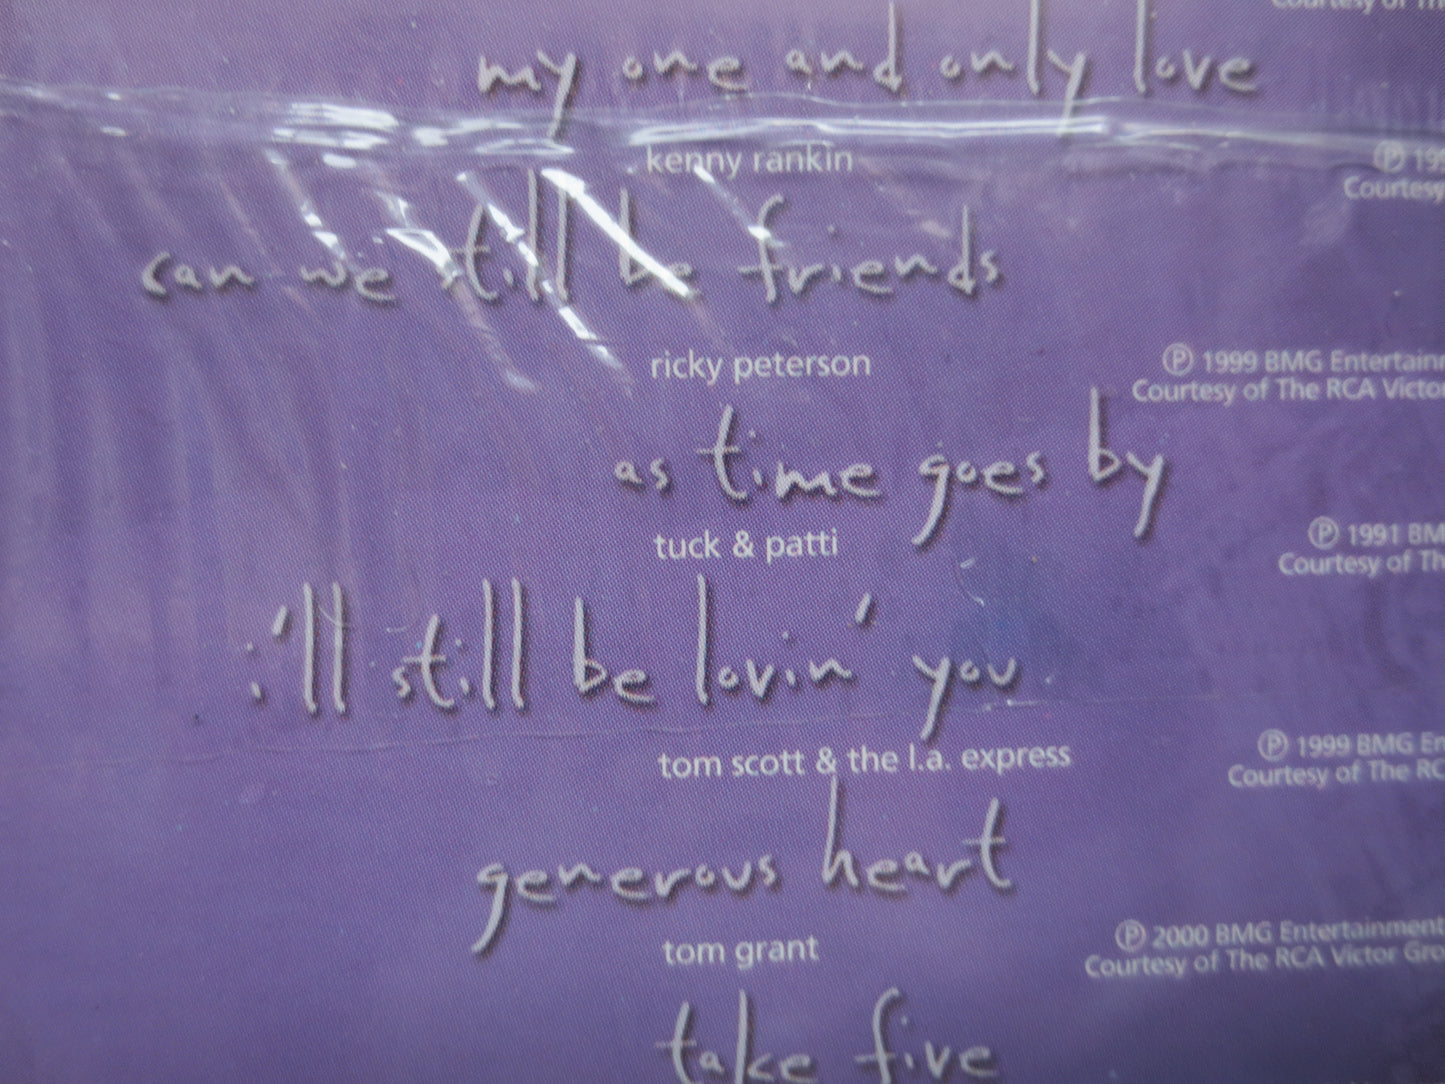 Courtesy of
my one and only love
kenny rankin
℗ 199
Courtesy
can we still be friends
ricky peterson
℗ 1999 BMG Entertain
Courtesy of The RCA Victo
as time goes by
tuck & patti
℗ 1991 BM
Courtesy of Th
i'll still be lovin' you
tom scott & the l.a. express
℗ 1999 BMG En
Courtesy of The RC
generous heart
tom grant
℗ 2000 BMG Entertainment
Courtesy of The RCA Victor Gro
take five